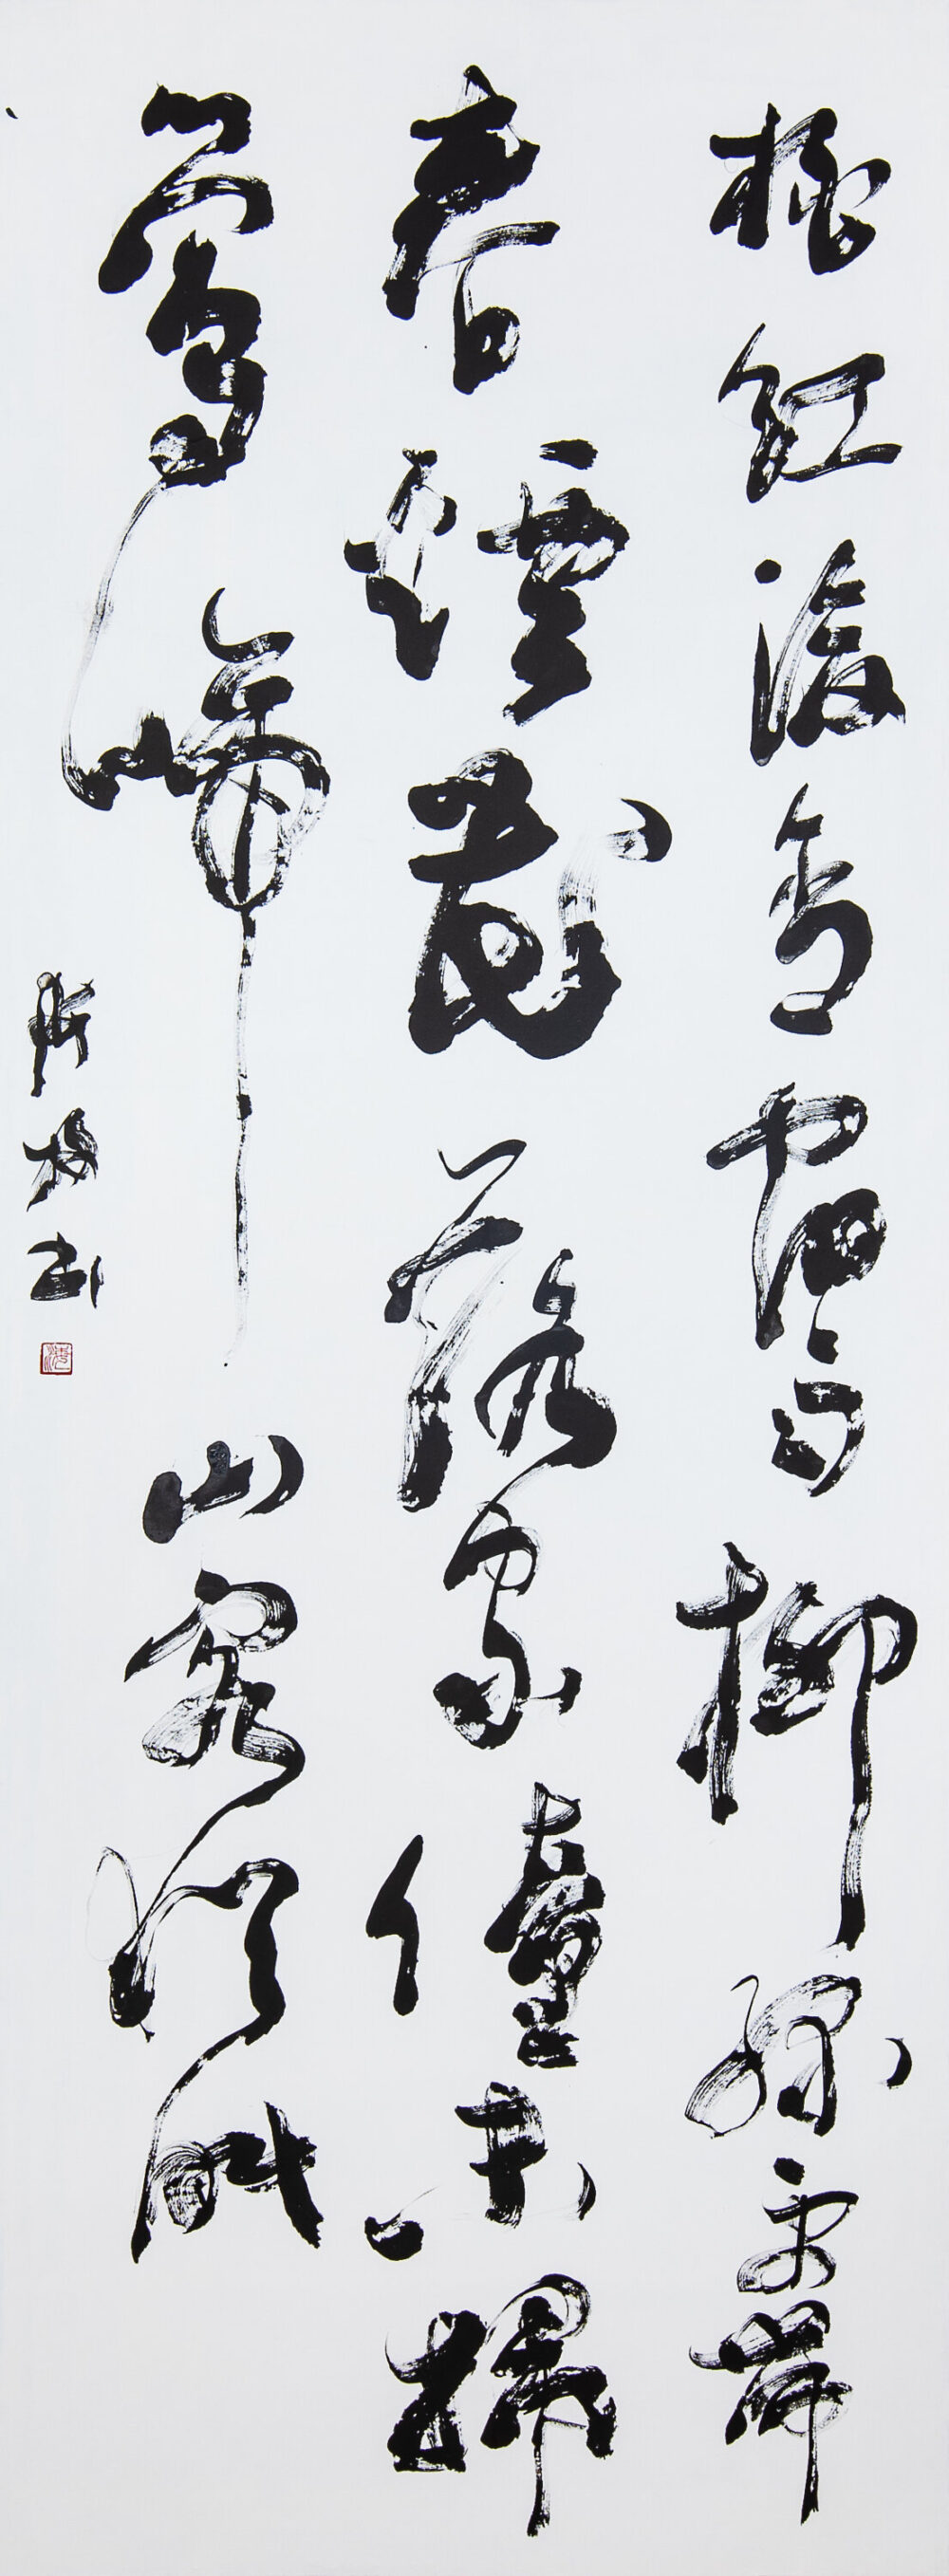 桃紅復含宿雨柳綠更帶
春煙花落家僮未掃
鶯啼山客猶眠